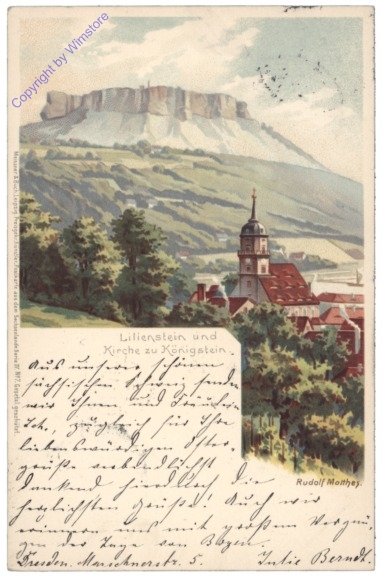 Copyright by Wimstore
Lilienstein und
Kirche zu Königstein.
Rudolf Matthes.
Aus unserer schönen
sächsischen Schweiz senden
wir Ihnen und Fräulein
zugleich für Ihre
liebenswürdigen Oster-
grüße verbindlichst
dankend hierdurch die
herzlichsten Grüße! Auch wir
erinnern uns mit großem Vergnü-
gen der Tage von Bozen.
Dresden, Marschnerstr. 5. Julie Berndt.